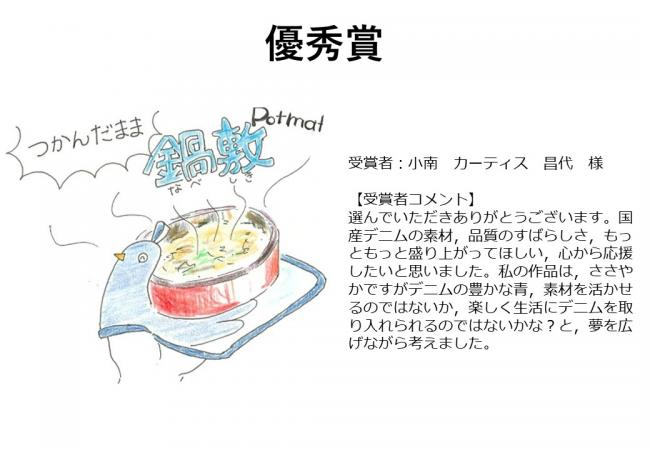 優秀賞
つかんだまま
鍋敷
Potmat
なべしき
受賞者：小南　カーティス　昌代　様
【受賞者コメント】
選んでいただきありがとうございます。国
産デニムの素材，品質のすばらしさ，もっ
ともっと盛り上がってほしい，心から応援
したいと思いました。私の作品は，ささや
かですがデニムの豊かな青，素材を活かせ
るのではないか，楽しく生活にデニムを取
り入れられるのではないかな？と，夢を広
げながら考えました。